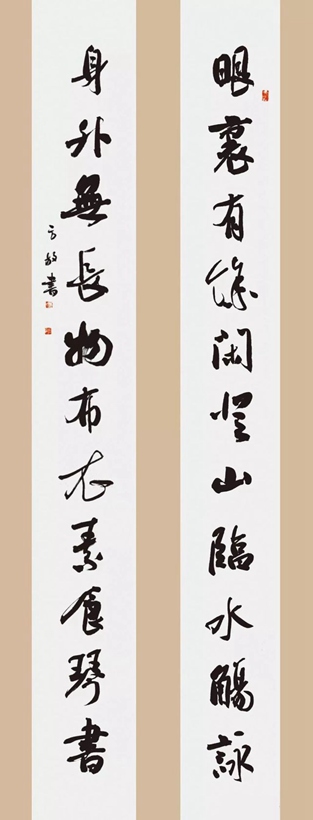 眼裏有餘閑登山臨水觴詠
身外無長物布衣素食琴書
方書